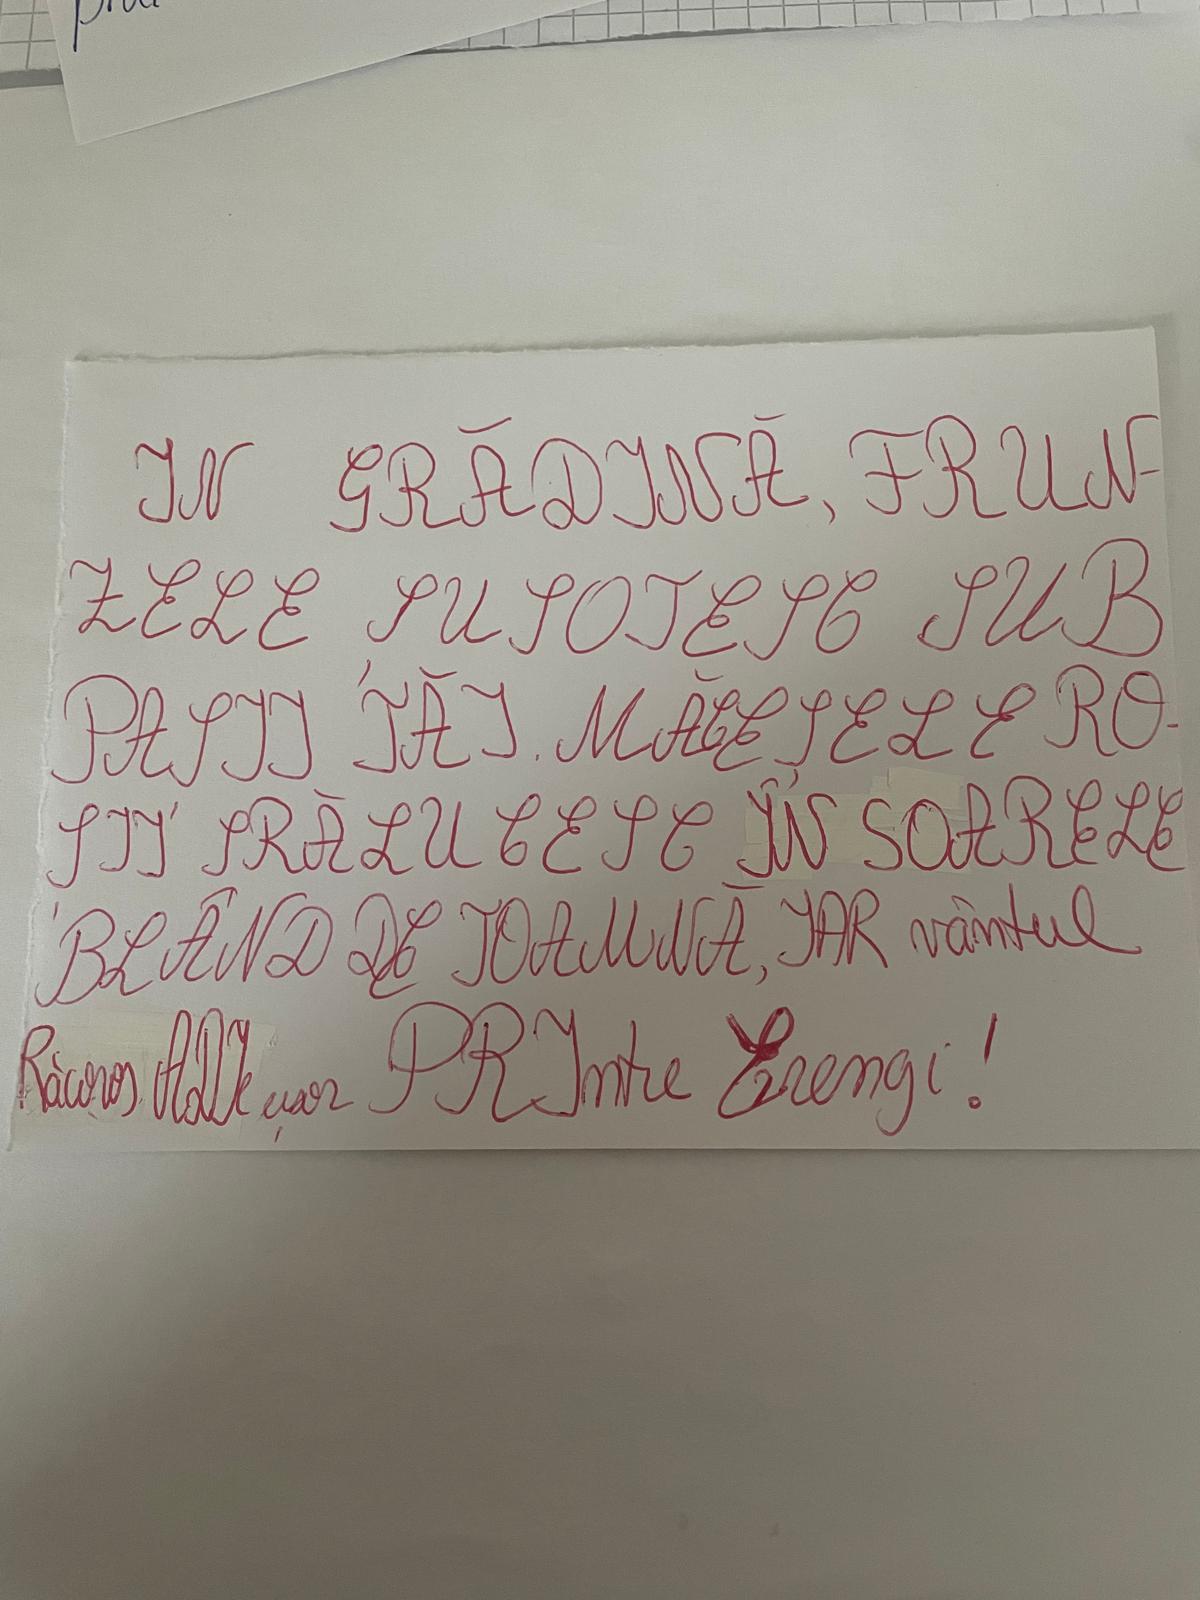 IN GRĂDINĂ, FRUN-
ZELE SUSOTESC SUB
PASII TĂI. MĂCESELE RO-
SII STRĂLUCESC ÎN SOARELE
BLÂND DE TOAMNĂ, IAR vântul
Răcoros ADIE ușor PRIntre Crengi!